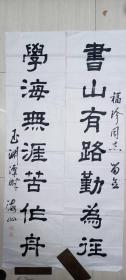 書山有路勤為徑
福珍同志留念
學海無涯苦作舟
玉淵潭畔
海山